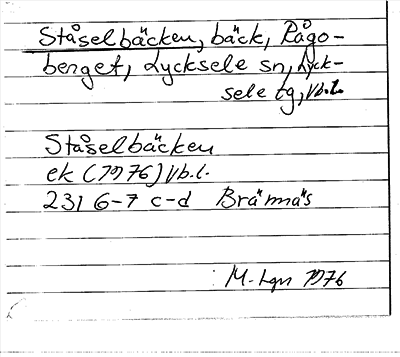 Ståselbäcken, bäck, Rågo-
berget, Lycksele sn, Lyck-
sele tg, Vb.l.
Ståselbäcken
ek (1976) Vb.l.
231 6-7 c-d Brännäs
M. Lgn 1976